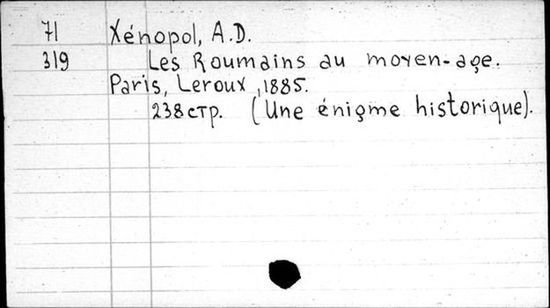 71 Xénopol, A.D.
319 Les Roumains au moyen-age.
Paris, Leroux, 1885.
238стр. (Une énigme historique).